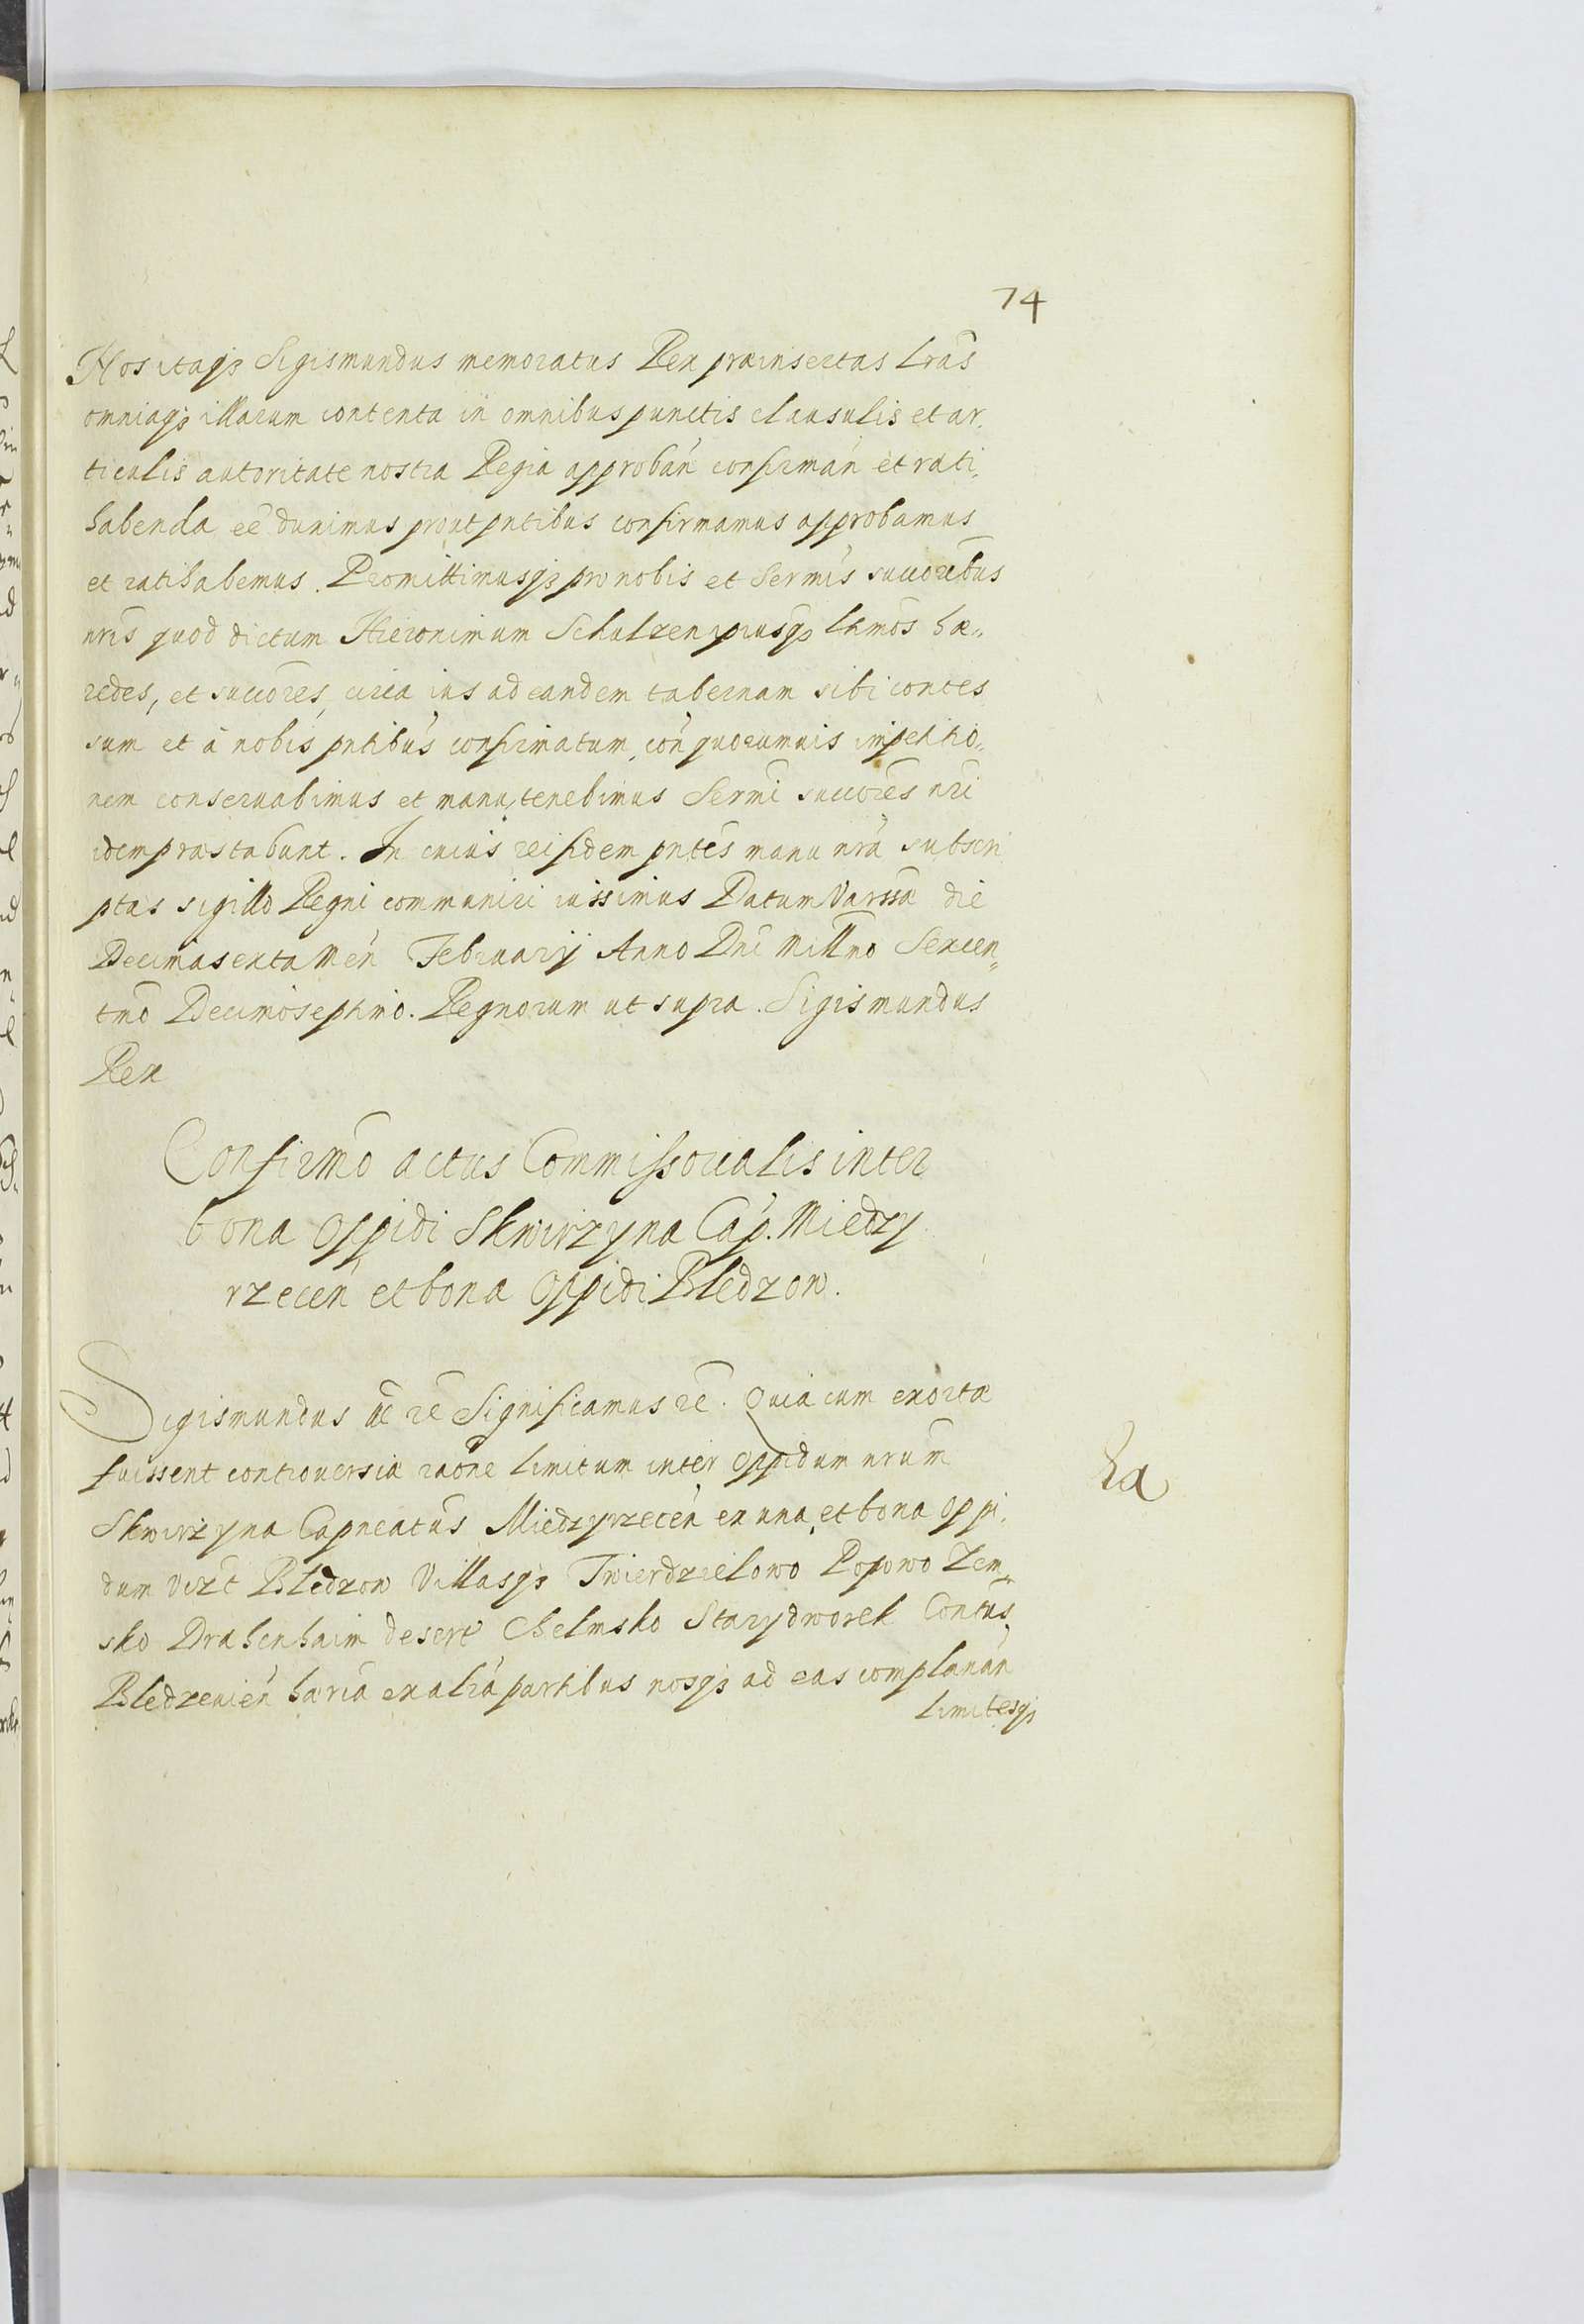 74
Nos itaqꝫ Sigismundus memoratus Rex præinsertas Lrãs
omniaqꝫ illarum contenta in omnibus punctis clausulis et ar,
ticulis autoritate nostra Regia approbán confirmán et rati,
habenda eẽ duximus prout pntibus confirmamus approbamus
et ratihabemus. Promittimusqꝫ pro nobis et Sermis succoribus
nris quod dictum Hieronimum Schulzen ipiusqꝫ lhmos hæ„
redes, et succores, circa ius ad eandem tabernam sibi conces
sum et à nobis pntibus confirmatum, con quorumuis impetitio„
nem conseruabimus et manutenebimus Sermi succores nri
idem præstabunt. In cuius rei fidem pntes manu nrã subscri
ptas sigillo Regni communiri iussimus Datum Varssæ die
Decimasexta Men Februarij Anno Dni Millno Sexcen„
tmo Decimoseptimo. Regnorum ut supra. Sigismundus
Rex
Confirmo actus Commissorialis inter
bona Oppidi Skwirzyna Cap. Miedzy
rzecen et bona Oppidi Bledzow.
Sigismundus ac re Significamus re. Quia cum exortæ
fuissent controuersiæ raone limitum inter Oppidum nrum
Skwirzyna Capneatus Miedzyrzecen ex una, et bona Oppi,
dum vizt Bledzow Villasqꝫ Twierdzielowo Popowo Zem„
sko Drahenhaim desert Chelmsko Starydworek Contus
Bledzeuien hæria ex alia partibus nosqꝫ ad eas complanan
limitesqꝫ